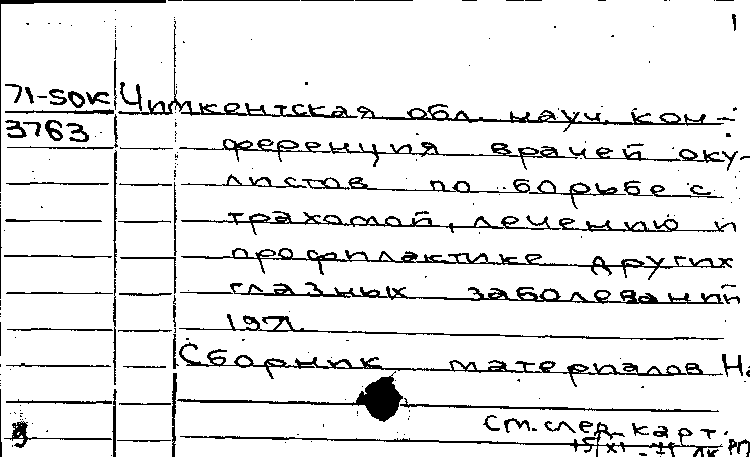 1
71-50К Чимкентская обл. науч. кон-
3763 ференция врачей оку-
листов по борьбе с
трахомой, лечению и
профилактике других
глазных заболеваний
1971.
Сборник материалов На
см. след. карт.